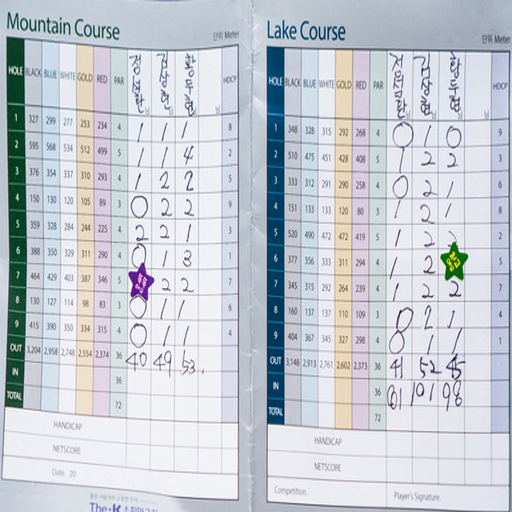 Mountain Course
단위 Meter
HOLE BLACK BLUE WHITE GOLD RED PAR HDCP
1 327 299 277 253 234 4 1 1 1 8
2 595 568 534 512 499 5 1 1 4 2
3 376 354 337 310 293 4 1 2 2 5
4 150 130 120 105 89 3 0 2 2 9
5 359 328 284 244 225 4 2 2 1 3
6 388 350 329 311 290 4 0 1 3 1
7 464 429 403 387 346 5 2 2 7
8 130 127 114 98 83 3 0 1 1 6
9 415 390 350 334 315 4 0 1 1 4
OUT 3,204 2,958 2,748 2,554 2,374 36 40 49 53.
IN 36
TOTAL 72
HANDICAP
NETSCORE
Date. 20
The·K
Lake Course
단위 Meter
HOLE BLACK BLUE WHITE GOLD RED PAR HDCP
1 348 328 315 292 268 4 0 1 0 9
2 510 475 451 428 408 5 1 2 2 3
3 333 312 291 290 258 4 0 2 1 6
4 151 133 133 120 80 3 1 2 1 8
5 520 490 472 472 419 5 1 2 2
6 377 356 333 311 294 4 1 2 5
7 345 315 292 264 239 4 1 2 2 7
8 160 137 137 110 109 3 0 2 1 4
9 404 367 345 327 298 4 0 1 1 1
OUT 3,148 2,913 2,761 2,602 2,373 36 41 52 45
IN 36 101 98
TOTAL 72
HANDICAP
NETSCORE
Competition. Player's Signature.